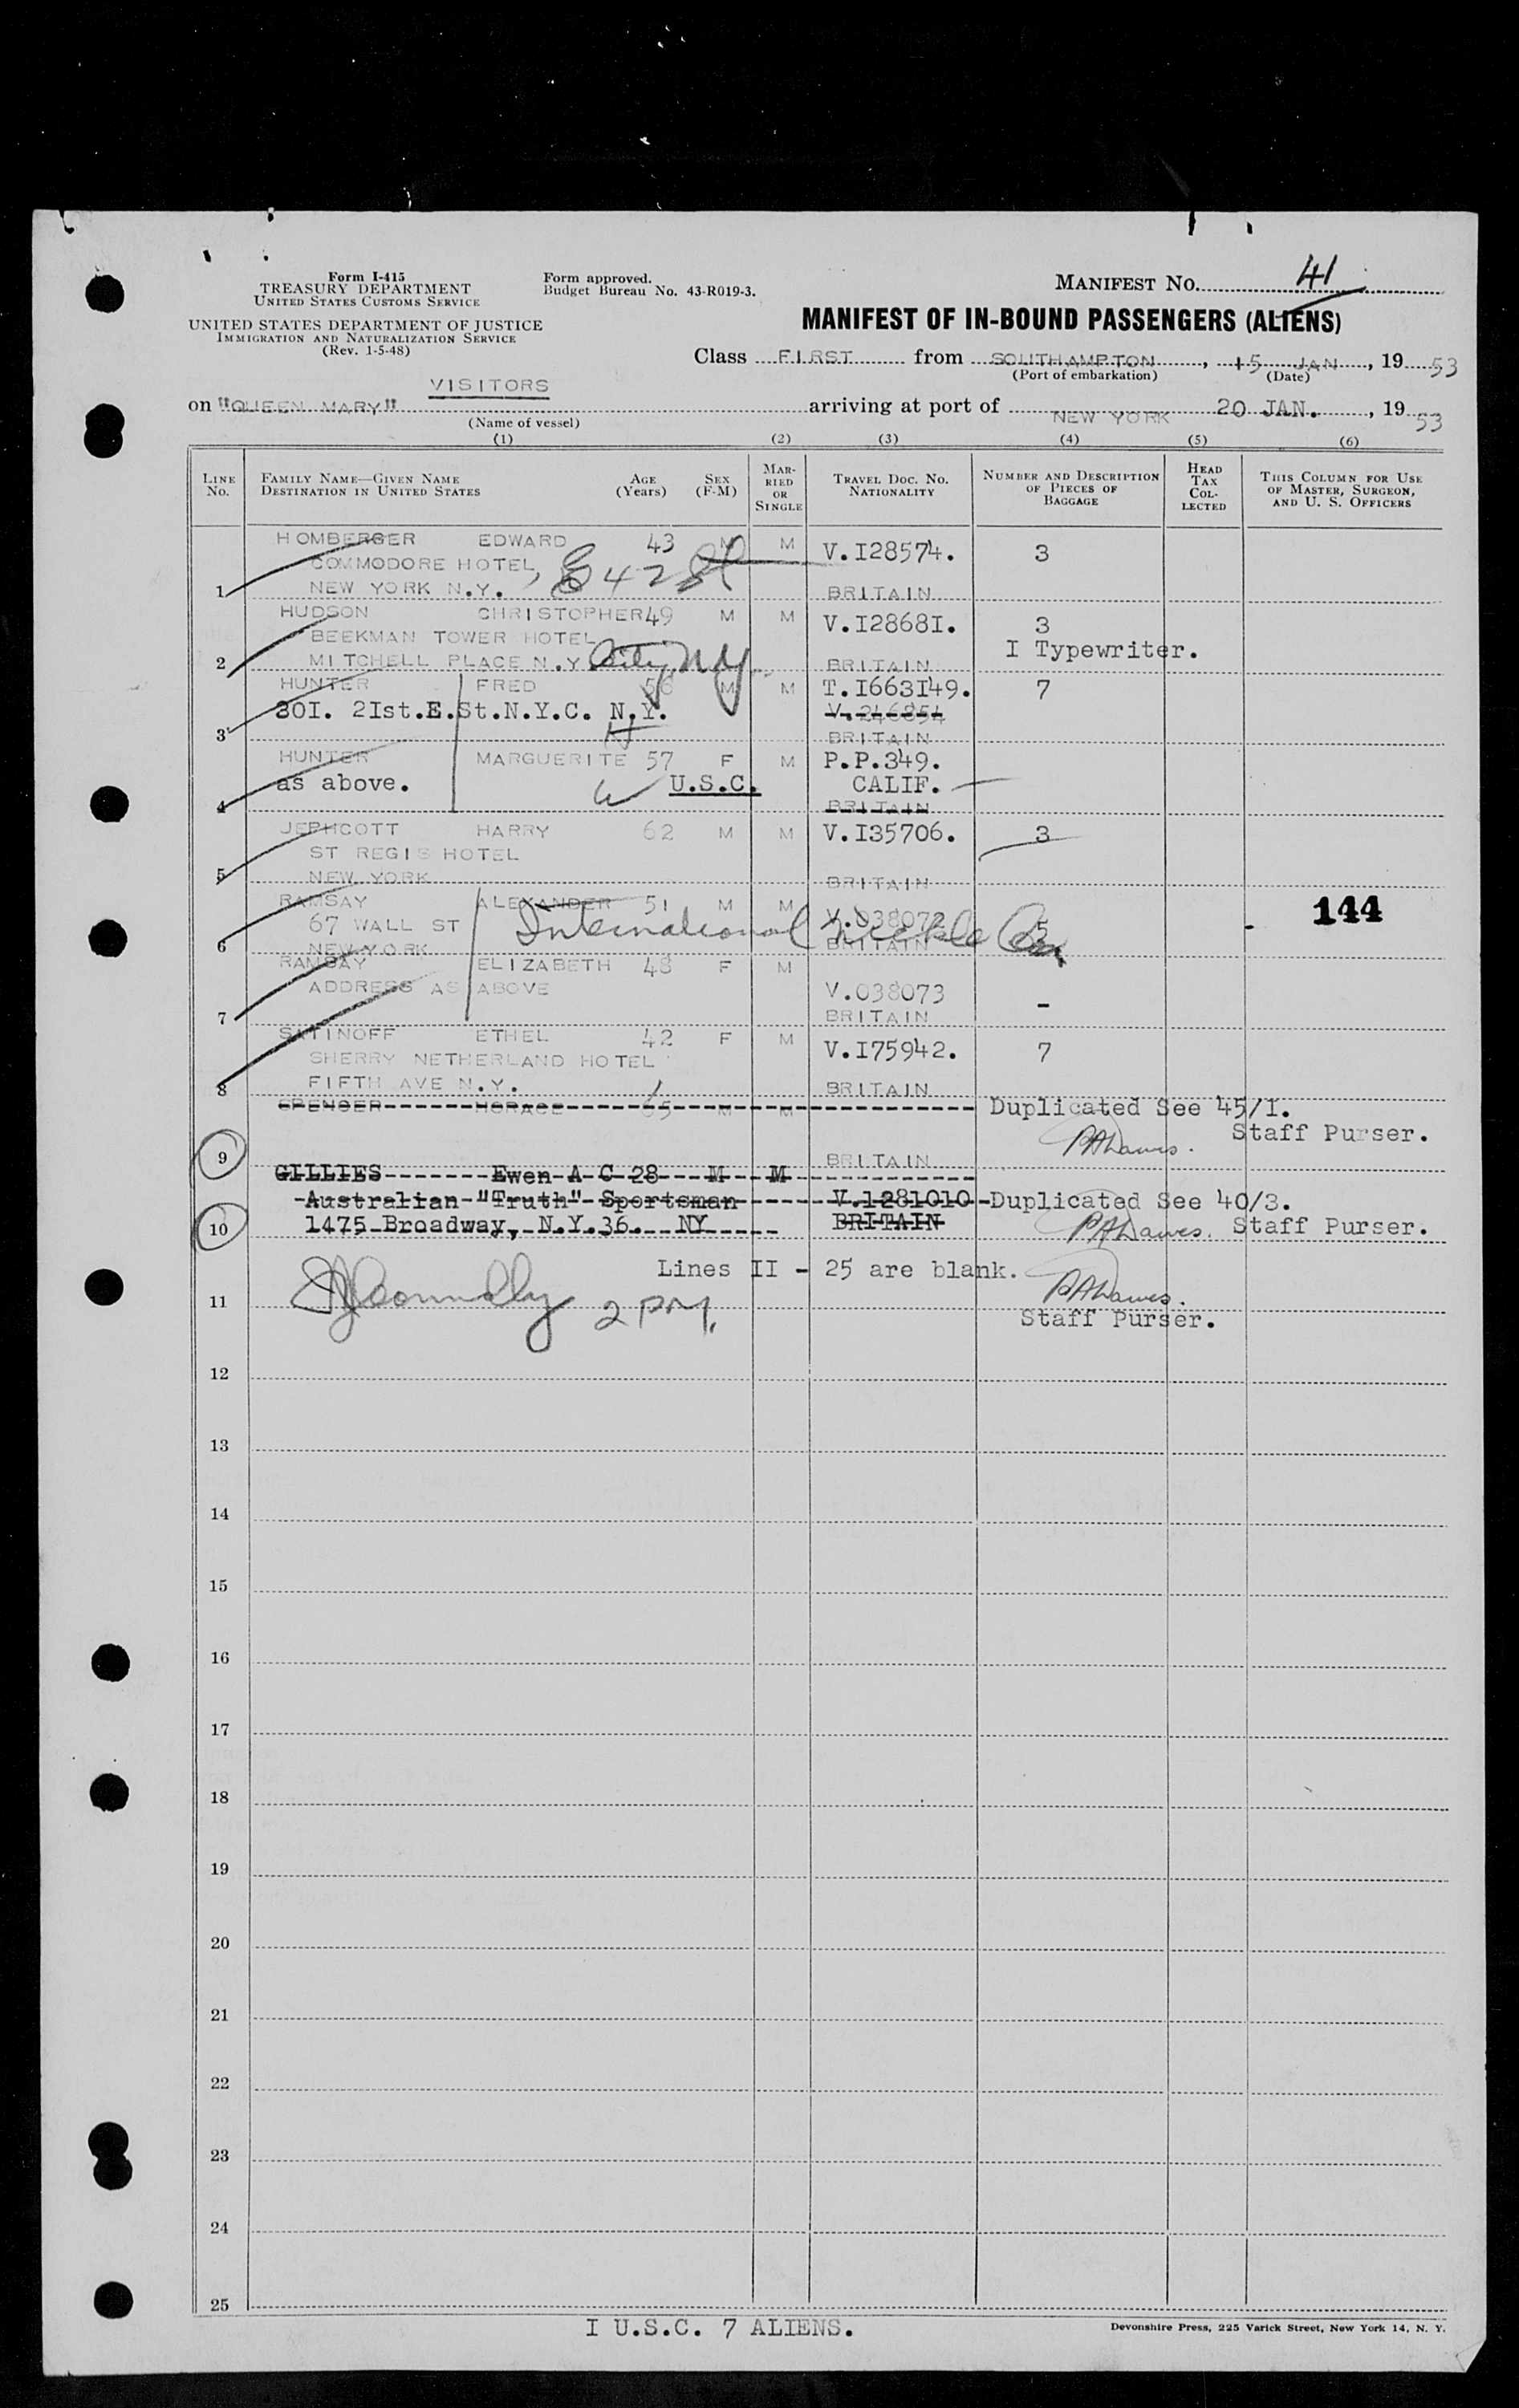 Form I-415
TREASURY DEPARTMENT
UNITED STATES CUSTOMS SERVICE
UNITED STATES DEPARTMENT OF JUSTICE
IMMIGRATION AND NATURALIZATION SERVICE
(Rev. 1-5-48)
Form approved.
Budget Bureau No. 43-R019-3.
MANIFEST NO. 41
MANIFEST OF IN-BOUND PASSENGERS (ALIENS)
Class FIRST from SOUTHAMPTON, 15 JAN, 19 53
(Port of embarkation) (Date)
VISITORS
on "QUEEN MARY" arriving at port of NEW YORK 20 JAN., 19 53
(Name of vessel)
(1) (2) (3) (4) (5) (6)
LINE NO. FAMILY NAME—GIVEN NAME DESTINATION IN UNITED STATES AGE (Years) SEX (F-M) MARRIED OR SINGLE TRAVEL DOC. NO. NATIONALITY NUMBER AND DESCRIPTION OF PIECES OF BAGGAGE HEAD TAX COLLECTED THIS COLUMN FOR USE OF MASTER, SURGEON, AND U. S. OFFICERS
HOMBERGER EDWARD 43 M M V.I28574. 3
COMMODORE HOTEL, E 42 St
1 NEW YORK N.Y. BRITAIN
HUDSON CHRISTOPHER 49 M M V.I2868I. 3
BEEKMAN TOWER HOTEL I Typewriter.
2 MITCHELL PLACE N.Y. City NY BRITAIN
HUNTER FRED 56 M M T.I663I49. 7
30I. 2Ist.E.St.N.Y.C. N.Y. V.246854
3 BRITAIN
HUNTER MARGUERITE 57 F M P.P.349.
as above. W U.S.C. CALIF.
4 BRITAIN
JEPHCOTT HARRY 62 M M V.I35706. 3
ST REGIS HOTEL
5 NEW YORK BRITAIN
RAMSAY ALEXANDER 51 M M V.038072 5 144
67 WALL ST International Nickle Co
6 NEW YORK BRITAIN
RAMSAY ELIZABETH 48 F M
ADDRESS AS ABOVE V.038073 -
7 BRITAIN
SATINOFF ETHEL 42 F M V.I75942. 7
SHERRY NETHERLAND HOTEL
8 FIFTH AVE N.Y. BRITAIN
SPENCER HORACE 65 M M Duplicated See 45/I.
PADawes. Staff Purser.
9 BRITAIN
GILLIES Ewen A C 28 M M
Australian "Truth" Sportsman V.1281010 Duplicated See 40/3.
10 1475 Broadway, N.Y.36. NY BRITAIN PADawes. Staff Purser.
Lines II - 25 are blank.
11 Connolly 2 PM. PADawes.
Staff Purser.
12
13
14
15
16
17
18
19
20
21
22
23
24
25
I U.S.C. 7 ALIENS.
Devonshire Press, 225 Varick Street, New York 14, N. Y.